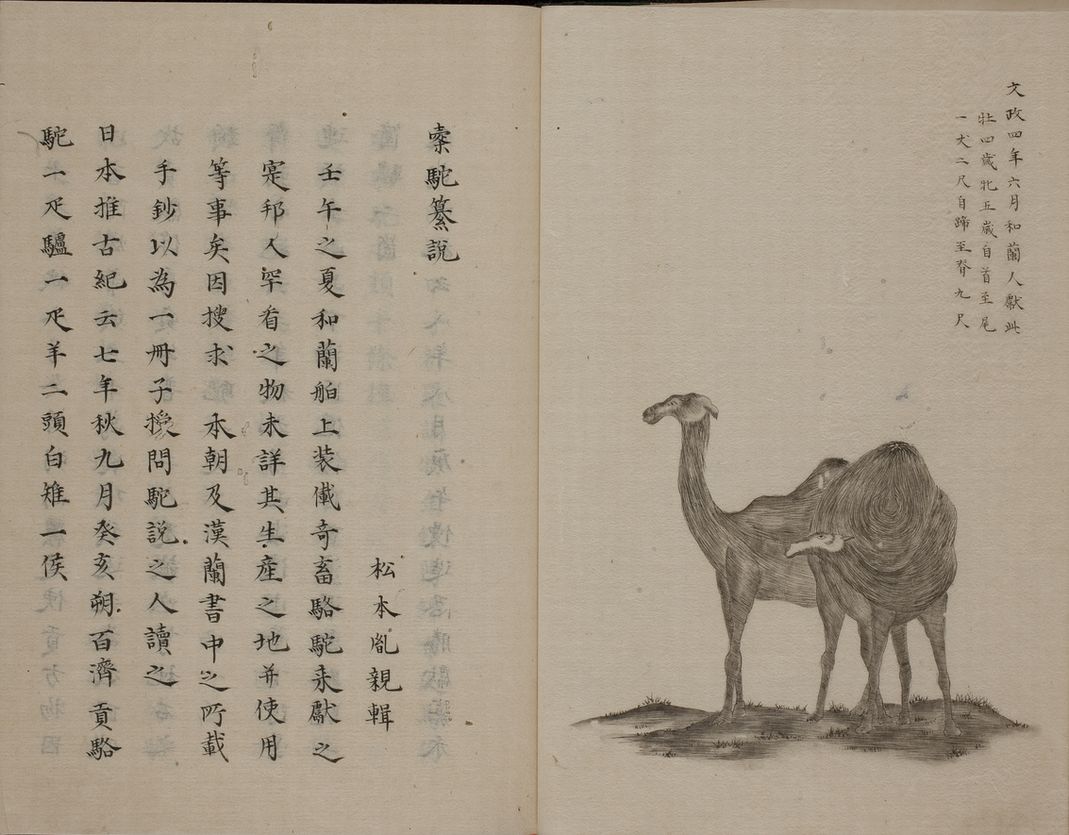 文政四年六月和蘭人献此
牡四歳牝五歳自首至尾
一丈二尺自蹄至脊九尺
橐駝纂説
松本胤親輯
壬午之夏和蘭舶上装儎奇畜駱駝来献之
寔邦人罕看之物未詳其生産之地并使用
等事矣因捜求本朝及漢蘭書中之所載
手鈔以為一冊子擬問駝説之人讀之
日本推古紀云七年秋九月癸亥朔百濟貢駱
駝一疋驢一疋羊二頭白雉一侯